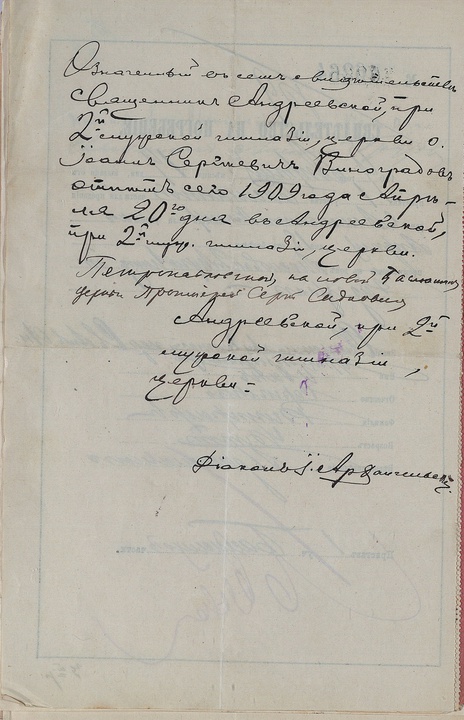 Означенный въ семъ свидѣтельствѣ
священникъ Андреевской, при
2й мужской гимназіи, церкви о.
Іоаннъ Сергѣевичъ Виноградовъ
отпѣтъ сего 1909 года Апрѣ-
ля 20го дня въ Андреевской,
при 2й муж. гимназіи, церкви.
Петропавловской, на новой
церкви Протоіерей
Андреевской, при 2й
мужской гимназіи,
церкви =
Діаконъ І. Архангельскій.